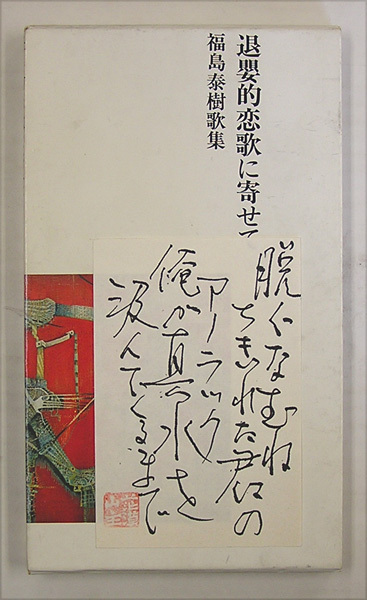 退嬰的恋歌に寄せて
福島泰樹歌集
脱ぐなむね
ちぎれた君の
アノラック
俺が真水を
汲んでくるまで